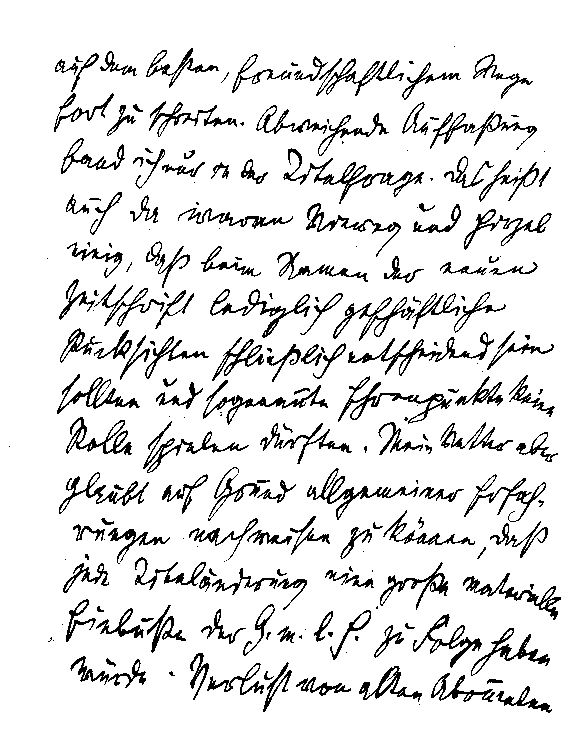 auf dem besten, freundschaftlichem Wege
fort zu schreiten. Abweichende Auffaßung
fand ich nur in der Titelfrage. Das heißt
auch da waren Norweg und Hirzel
einig, daß beim Namen der neuen
Zeitschrift lediglich geschäftliche
Rücksichten schließlich entscheidend sein
sollten und sogenannte Ehrenpunkte keine
Rolle spielen dürften. Mein Vetter aber
glaubt auf Grund allgemeiner Erfah-
rungen nachweisen zu können, daß
jede Titeländerung eine große materielle
Einbuße der G. m. b. H. zu Folge haben
würde. Verlust von alten Abonnenten